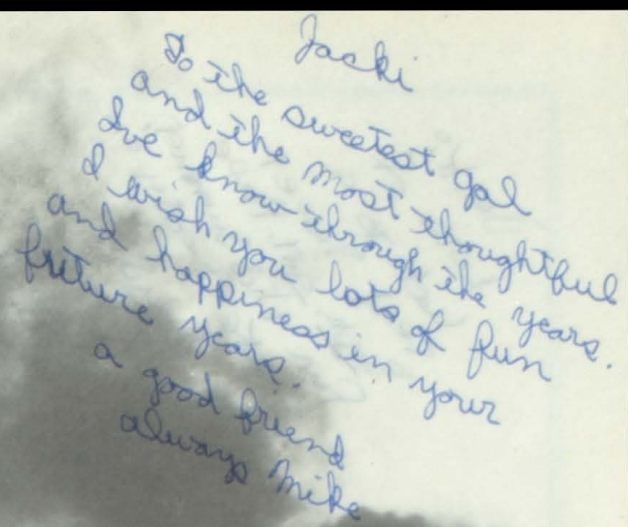 Jacki
To the sweetest gal
and the most thoughtful
I've know through the years.
I wish you lots of fun
and happiness in your
future years.
a good friend
always Mike